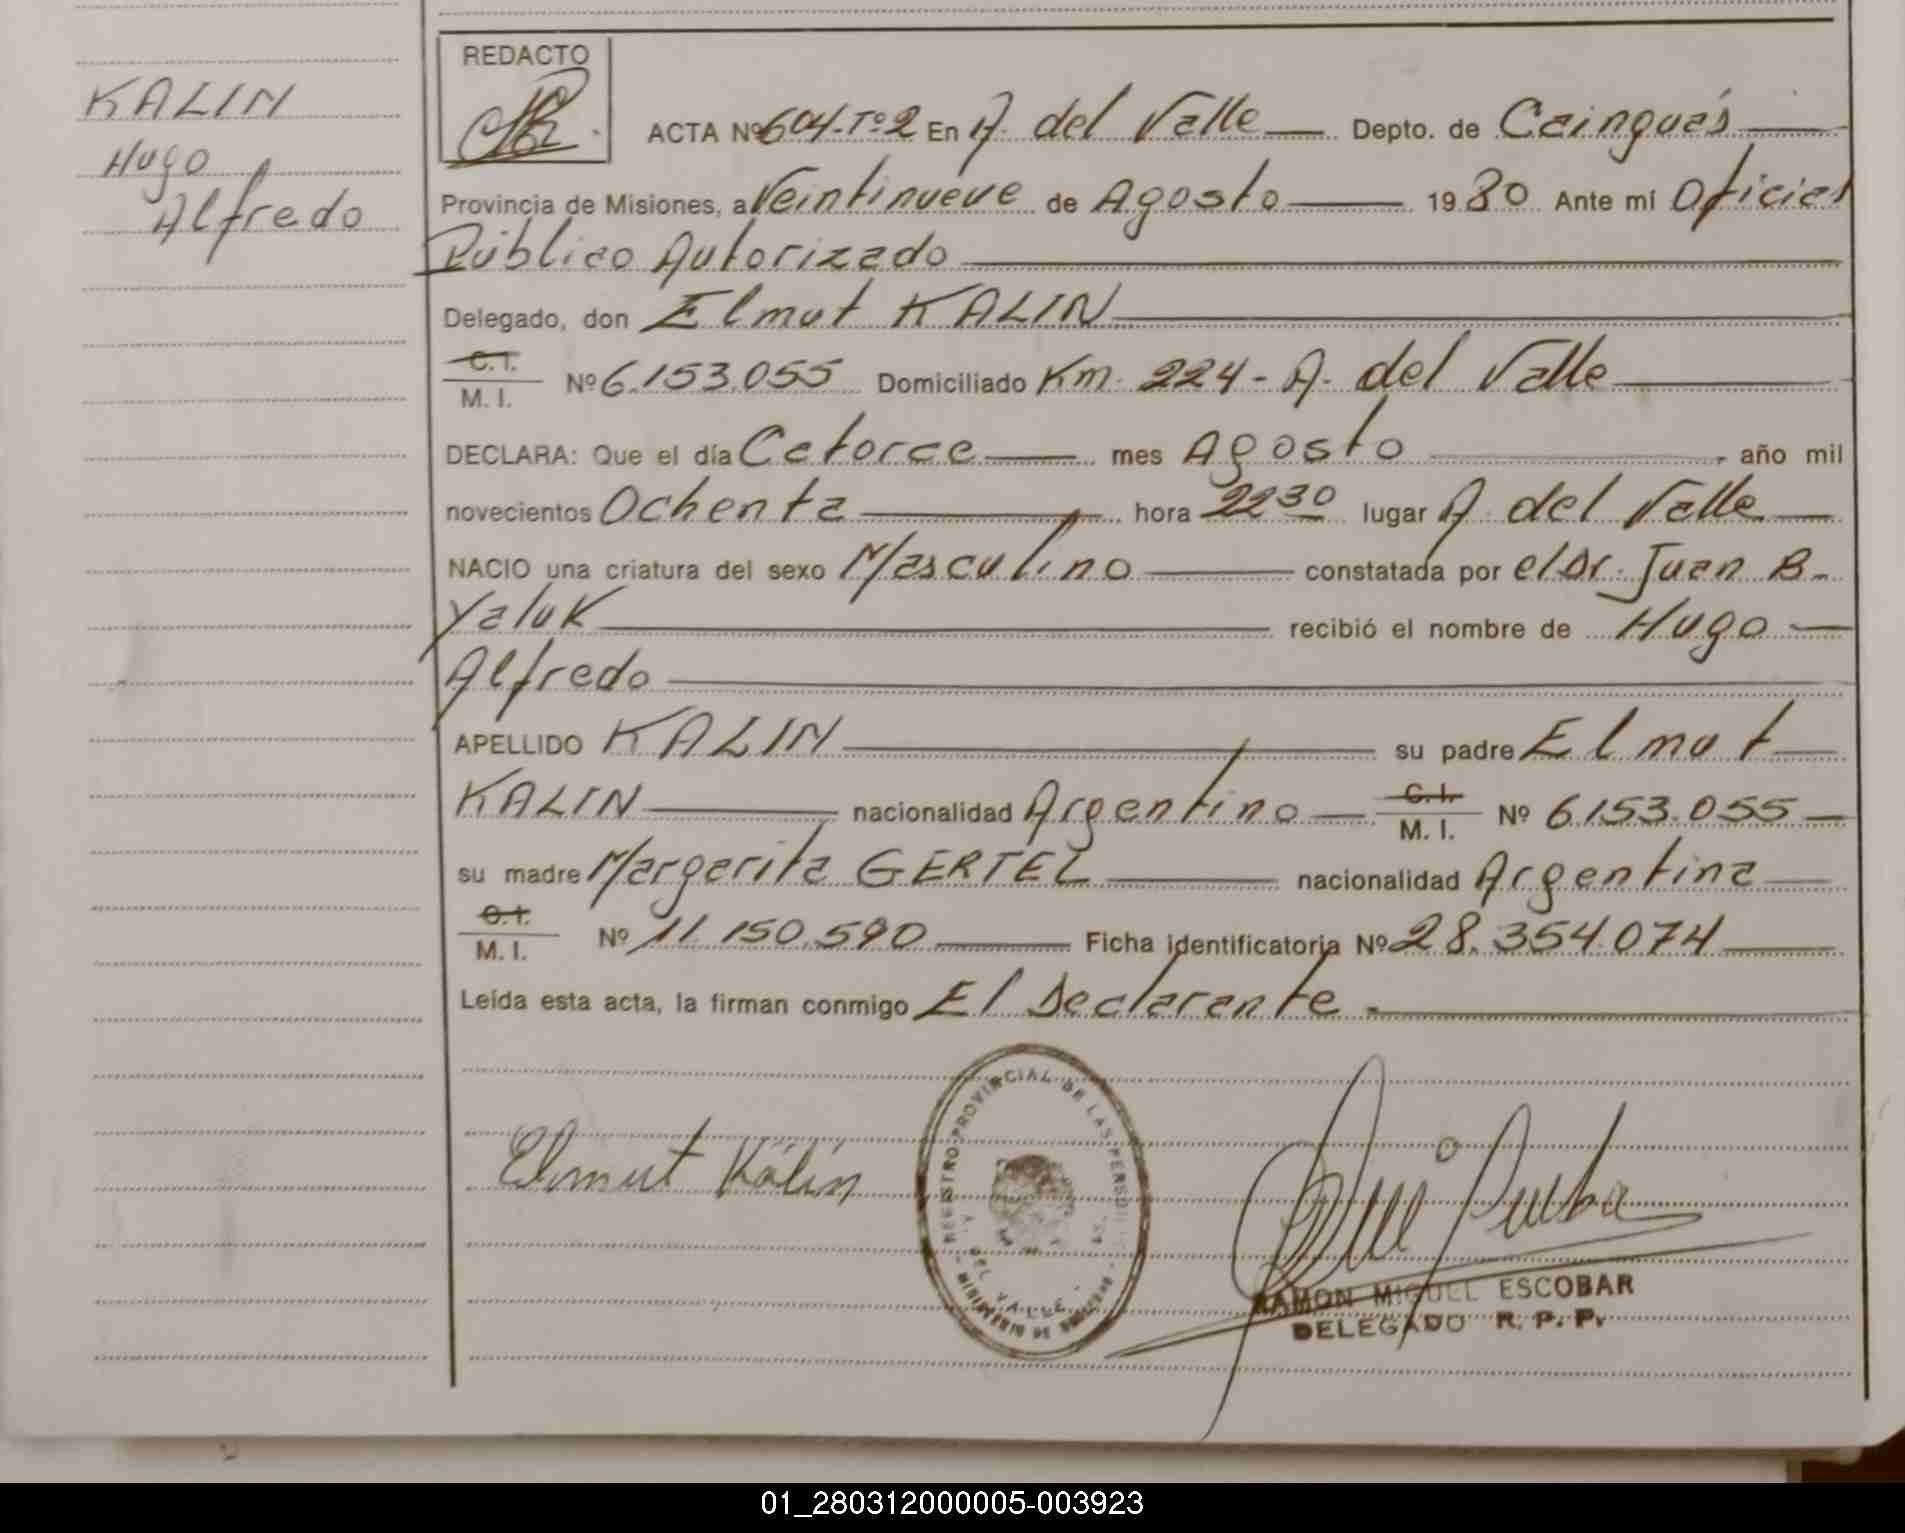 KALIN
Hugo
Alfredo
REDACTO
ACTA Nº 604-Tº2 En A. del Valle Depto. de Cainguás
Provincia de Misiones, a Veintinueve de Agosto 1980 Ante mí Oficial
Público Autorizado
Delegado, don Elmut KALIN
C. I.
M. I. Nº 6.153.055 Domiciliado Km. 224 - A. del Valle
DECLARA: Que el día Catorce mes Agosto año mil
novecientos Ochenta hora 22 30 lugar A. del Valle
NACIO una criatura del sexo Masculino constatada por el Dr. Juan B.
Yaluk recibió el nombre de Hugo
Alfredo
APELLIDO KALIN su padre Elmut
KALIN nacionalidad Argentino C. I. M. I. Nº 6.153.055
su madre Margarita GERTEL nacionalidad Argentina
C. I.
M. I. Nº 11.150.590 Ficha identificatoria Nº 28.354.074
Leída esta acta, la firman conmigo El Declarante.
Elmut Kälin
REGISTRO PROVINCIAL DE LAS PERSONAS
A. DEL VALLE
MINISTERIO DE GOBIERNO
RAMON MIGUEL ESCOBAR
DELEGADO R. P. P.
01_280312000005-003923